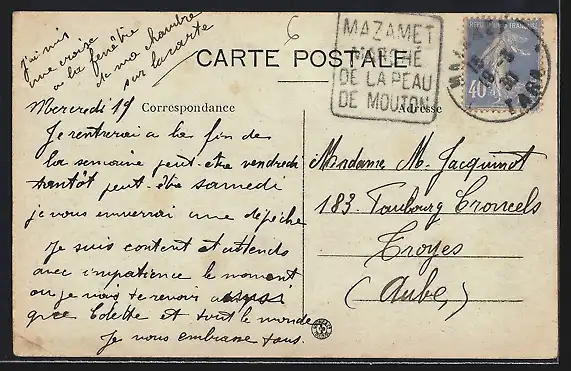 j'ai mis
une croise
a la fenêtre
de ma chambre
sur la carte
6
CARTE POSTALE
MAZAMET
MARCHÉ
DE LA PEAU
DE MOUTON
REPUBLIQUE FRANÇAISE
40
TARN
Correspondance
Adresse
Mercredi 19
Je rentrerai a la fin de
la semaine peut-être vendredi
tantôt peut-être samedi
je vous enverrai une depêche
Je suis content et attends
avec impatience le moment
ou je vais te revoir aussi
que Colette et tout le monde
Je vous embrasse tous.
Madame M. Jacquinot
183. Faubourg Croncels
Troyes
(Aube)